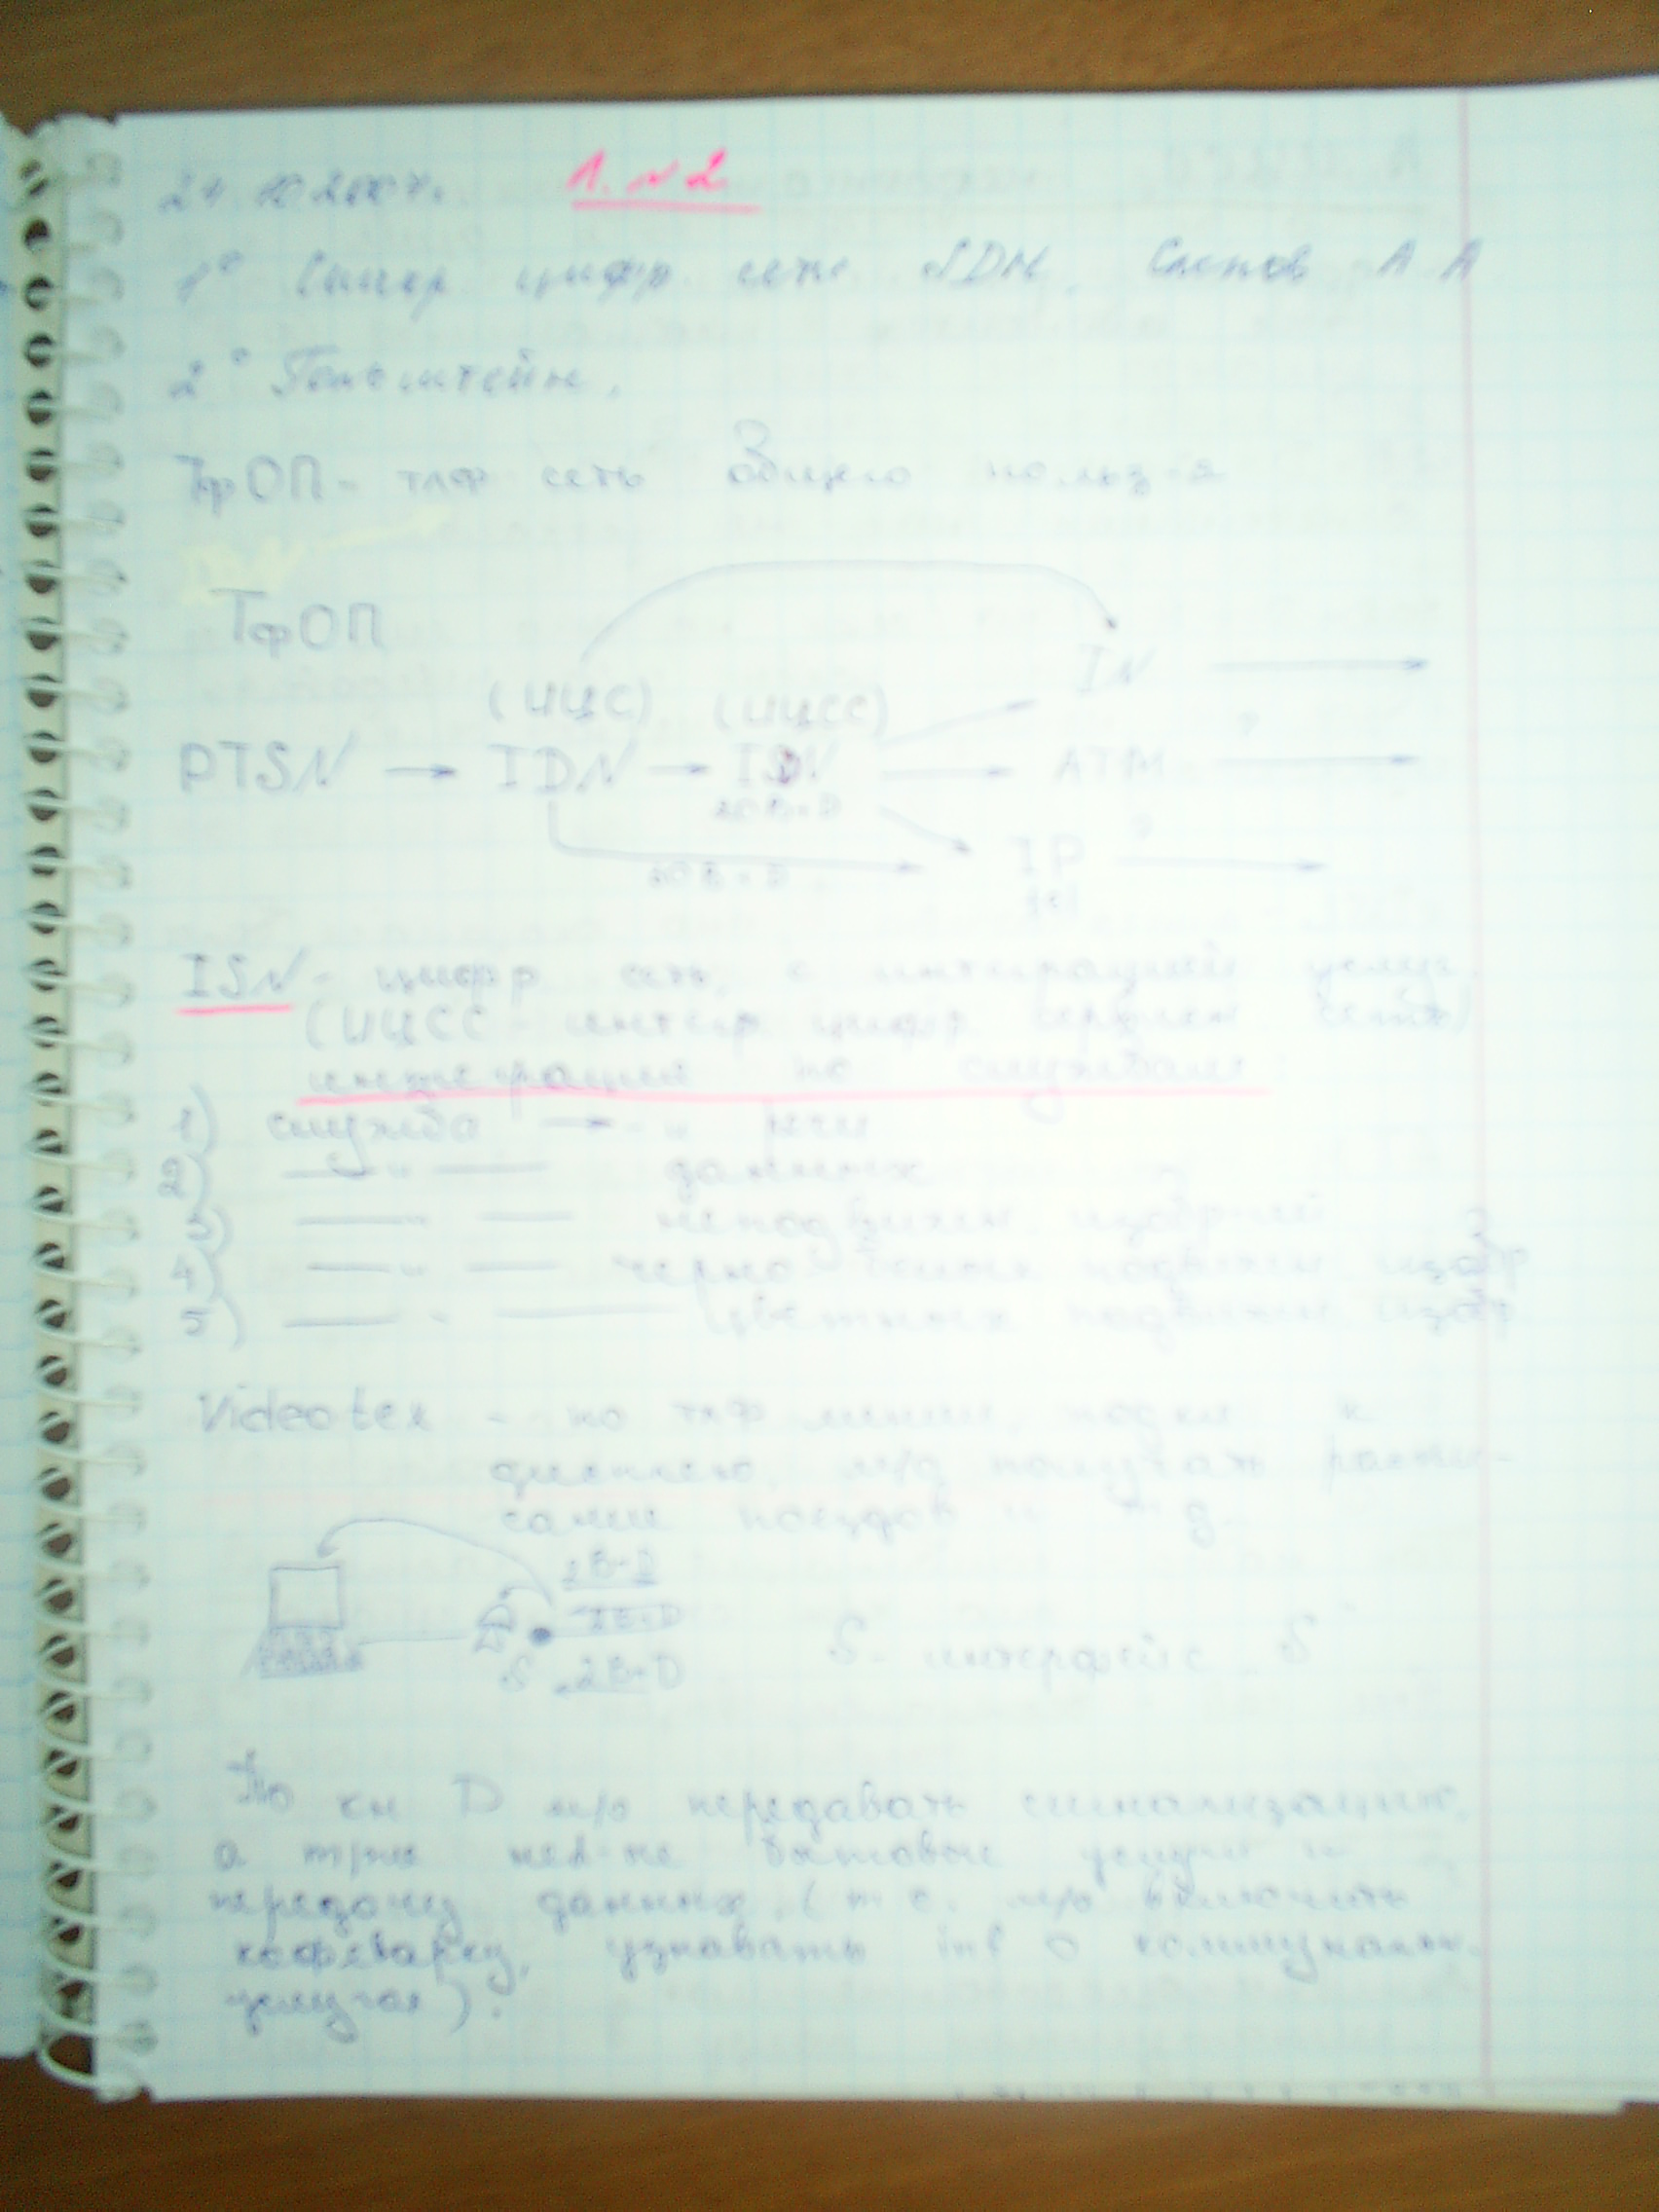 Л. №2
1° Синхр. цифр. сети SDH. Слепов А А
2° Гольдштейн.
ТфОП - тлф сеть общего польз-я
ТфОП
(ИЦС) (ИЦСС) IN
PTSN → IDN → ISDN ATM ?
30B+D IP ?
ISN - цифр сеть с интеграцией услуг
(ИЦСС - интегр цифр сеть)
интеграция по службам
1) служба → речи
2) —"— данных
3) —"— неподвижн. изобр-ий
4) —"— черно-белых подвижн изобр
5) —"— цветных подвижн изобр
Videotex - по тлф линии, подкл к
дисплею, м/о получать распи-
сание поездов и т д.
2B+D
2B+D
S 2B+D S - интерфейс S
По кн D м/о передавать сигнализацию,
а при бытовые услуги и
передачу данных (т е. м/о включить
кофеварку, узнавать inf о коммунальн.
услугах).